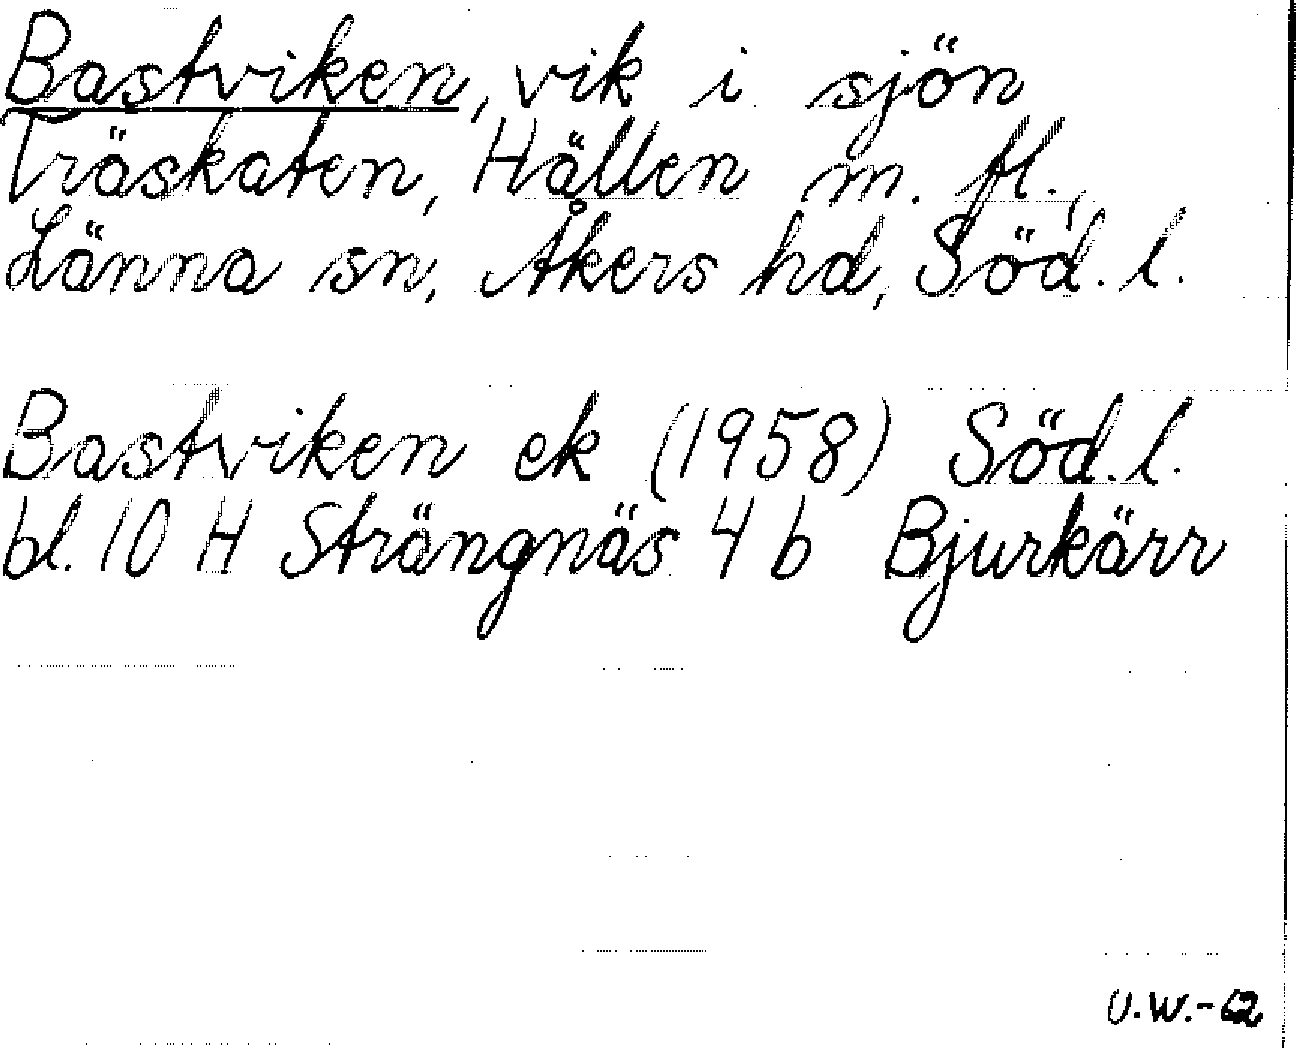 Bastviken, vik i sjön
Träskaten, Hällen m. fl.,
Länna sn, Åkers hd, Söd. l.
Bastviken ek (1958) Söd. l.
bl. 10 H Strängnäs 4 b Bjurkärr
U.W.-62